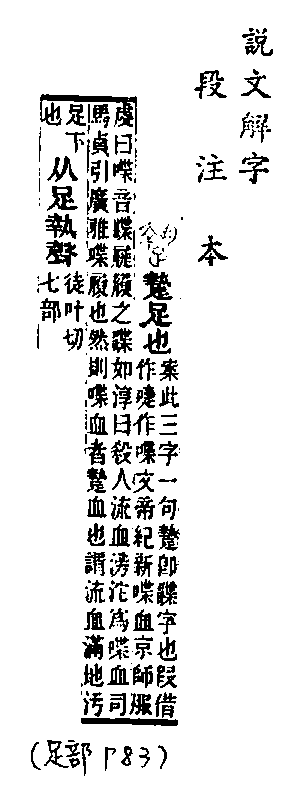 說文解字
段注本
足也
案此三字一句卽蹀字也叚借
作啑作喋文帝紀新喋血京師服
虔曰喋音蹀屣履之蹀如淳曰殺人流血滂沱爲喋血司
馬貞引廣雅喋履也然則喋血者血也謂流血滿地污
足下
也
从足執聲
徒叶切
七部
(足部 P83)